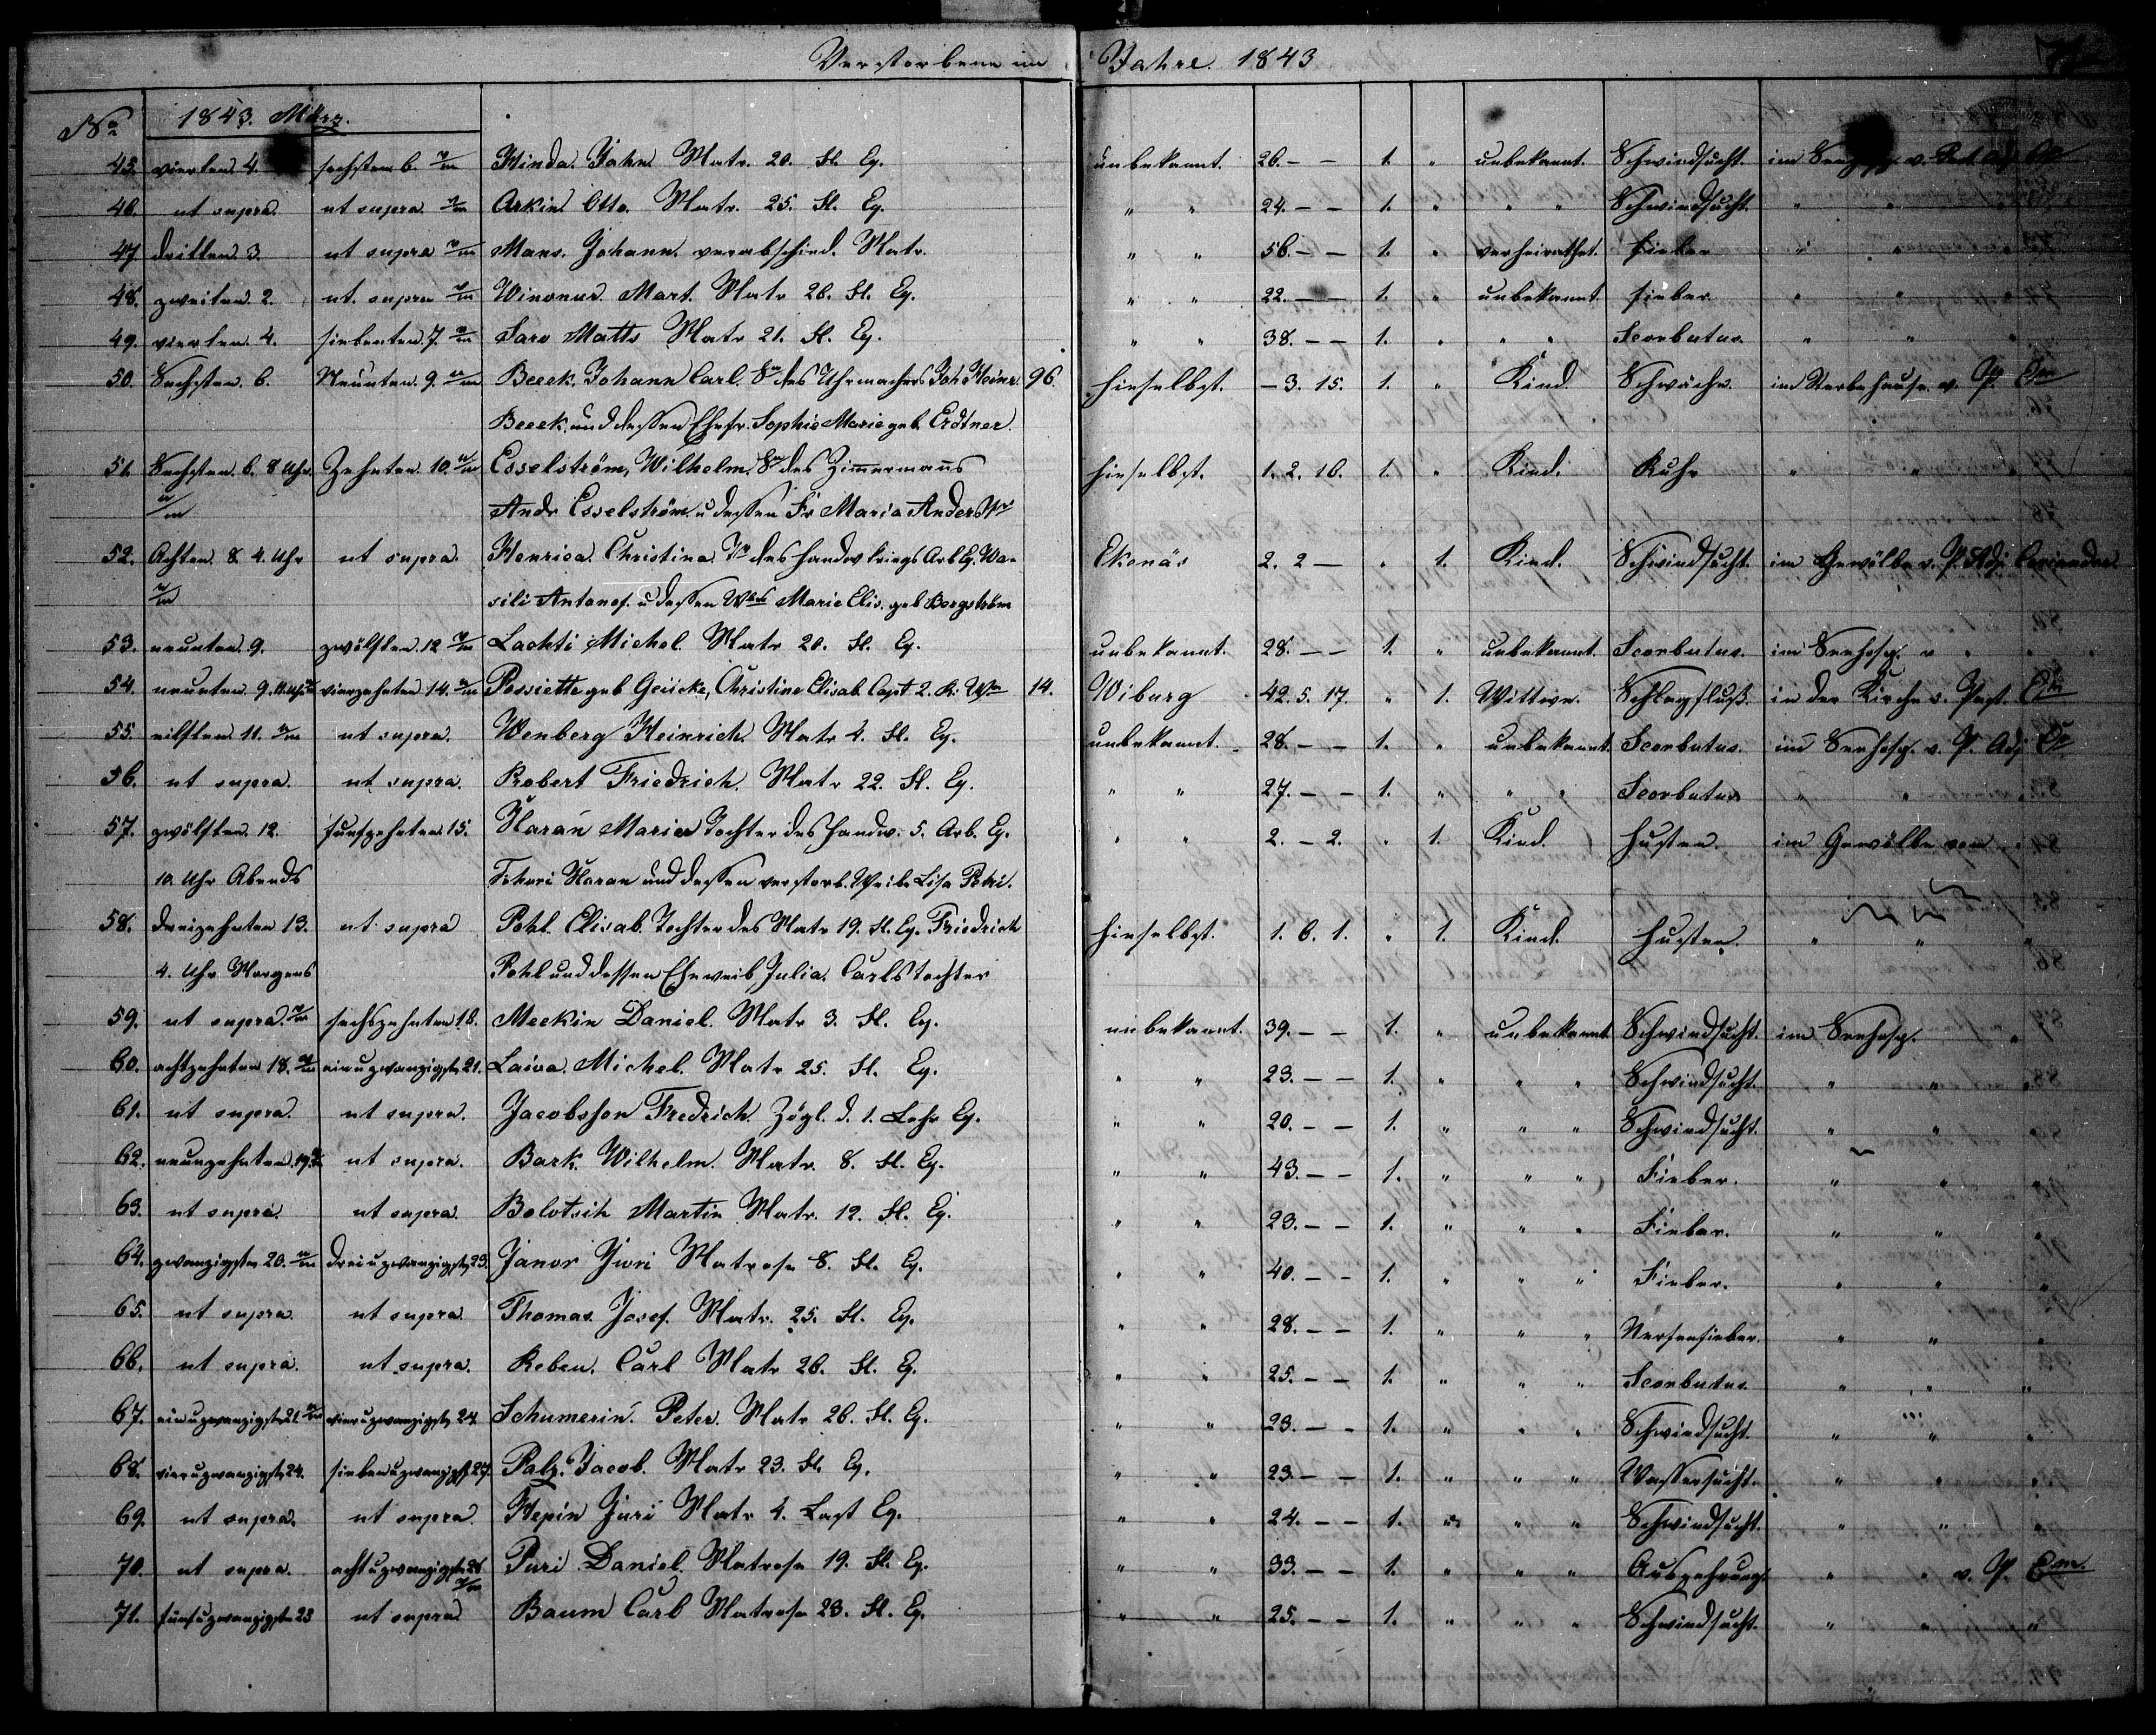 Verstorbene im Jahre 1843
No 1843. März.
45. vierten 4. sechsten 6 Hinda Jahn Matr. 20. Fl. Eq. unbekannt. 26. – – 1. " unbekannt. Schwindsucht. im Seehosp. v. Past. Adj.
46. ut supra. ut supra Arkin Otto. Matr. 25. Fl. Eq. " " 24. – – 1. " " " Schwindsucht. " "
47. dritten 3. ut supra Mans. Johann. verabschied. Matr. " " 56. – – 1. " verheirathet. Fieber " "
48. zweiten 2. ut. supra Winonus Mart. Matr 26. Fl. Eq. " " 22. – – 1. " unbekannt. Fieber. " "
49. vierten 4. siebenten 7. Saro Matts Matr 21. Fl. Eq. " " 38. – – 1. " " " Scorbutus. " "
50. Sechsten. 6. Neunten. 9. Beeck. Johann Carl. Sn des Uhrmachers Joh. Heinr. 96. hieselbst. – 3. 15. 1. " Kind Schwäche. im Sterbehause. v. P.
Beeck. und dessen Ehefr. Sophie Marie geb. Erdtner.
51. Sechsten. 6. 8 Uhr. Zehnten. 10. Esselström, Wilhelm. Sn des Zimmermanns hieselbst. 1. 2. 10. 1. " Kind. Ruhr " "
Andr Esselström. u dessen Fr Maria Anders
52. Achten. 8 4. Uhr ut supra. Henrica. Christina. Tr des Handw. Kriegs Arb Eq. Wa- Ekenäs 2. 2 – " 1. Kind. Schwindsucht. im Gewölbe v. P. Adj.
sili Antonof. u dessen Marie Elis. geb Bergström
53. neunten 9. zwölften 12 Lachti Michel. Matr 20. Fl. Eq. unbekannt. 28. – – 1. " unbekannt. Scorbutus. im Seehosp. v " "
54. neunten 9. 11. Uhr vierzehnten 14. Possiette geb Geiicke, Christine Elisab. Capt 2. R. 14. Wiburg 42. 5. 17. " 1. Wittwe. Schlagfluß. in der Kirche v. Past.
55. eilften 11. ut supra. Wenberg Heinrich. Matr 4. Fl. Eq. unbekannt. 28. – – 1. " unbekannt. Scorbutus. im Seehosp. v. P. Adj
56. ut supra. ut supra. Robert Friedrich. Matr 22. Fl. Eq. " " 27. – – 1. " " " Scorbutus " "
57. zwölften 12. funfzehnten 15. Haran Maria Tochter des Handw. 5. Arb. Eq. " " 2. – 2. " 1. Kind. Husten. im Gewölbe vom
10 Uhr Abends Haran und dessen verstorb. Weibe Lisa
58. dreizehnten 13. ut supra Pohl. Elisab. Tochter des Matr 19. Fl. Eq. Friedrich hieselbst. 1. 6. 1. " 1. Kind. Husten. " "
4. Uhr Morgens Pohl und dessen Eheweib Julia. Carlstochter
59. ut supra. sechszehnten 16. Meekin Daniel. Matr 3. Fl. Eq. unbekannt. 39. – – 1. " unbekannt Schwindsucht. im Seehosp.
60. achtzehnten 18. ein u zwanzigst 21. Laiva. Michel. Matr 25. Fl. Eq. " " 23. – – 1. " " " Schwindsucht. " "
61. ut supra. ut supra. Jacobsson Fredrich. Zögl. d. 1. Lehr Eq. " " 20. – – 1. " " " Schwindsucht. " "
62. neunzehnten 19. ut supra. Bark. Wilhelm. Matr. 8. Fl. Eq. " " 43. – – 1. " " " Fieber. " "
63. ut supra. ut supra. Bolotsih Martin Matr. 12. Fl. Eq. " " 23. – – 1. " " " Fieber. " "
64. zwanzigsten 20. drei u zwanzigst 23. Janor Jwri Matrose 8. Fl. Eq. " " 40. – – 1. " " " Fieber. " "
65. ut supra. ut supra. Thomas Josef. Matr. 25. Fl. Eq. " " 28. – – 1. " " " Nervenfieber. " "
66. ut supra. ut supra. Reben. Carl Matr 26. Fl. Eq. " " 25. – – 1. " " " Scorbutus. " "
67. ein u zwanzigst 21. vier u zwanzigst 24 Schumerin. Peter. Matr 26. Fl. Eq. " " 23. – – 1. " " " Schwindsucht. " "
68. vier u zwanzigst 24. sieben u zwanzigst 27 Palz. Jacob. Matr 23. Fl. Eq. " " 23. – – 1. " " " Wassersucht. " "
69. ut supra. ut supra. Hepin Juri Matr 4. Last Eq. " " 24. – – 1. " " " Schwindsucht. " "
70. ut supra. acht u zwanzigst 28 Puri Daniel. Matrose 19. Fl. Eq. " " 33. – – 1. " " " Auszehrung. " " v. P.
71. fünf u zwanzigst 25 ut supra Baum Carl Matrose 23. Fl. Eq. " " 25. – – 1. " " " Schwindsucht. " "